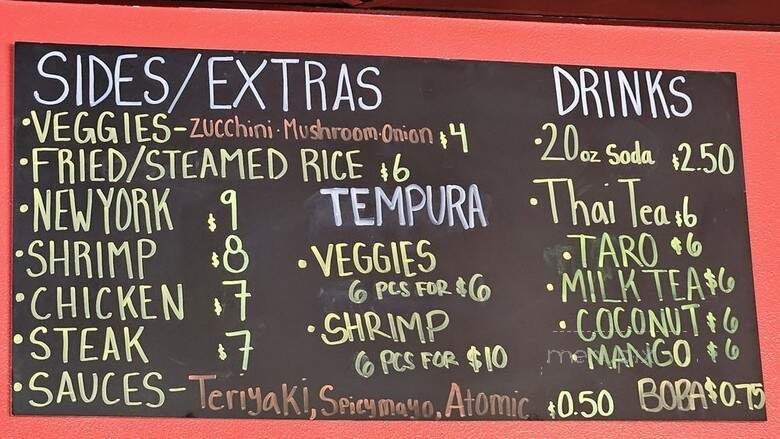 SIDES/EXTRAS
•VEGGIES-Zucchini•Mushroom•Onion $4
•FRIED/STEAMED RICE $6
•NEW YORK $9
•SHRIMP $8
•CHICKEN $7
•STEAK $7
•SAUCES-Teriyaki, Spicy mayo, Atomic $0.50
TEMPURA
•VEGGIES
6 PCS FOR $6
•SHRIMP
6 PCS FOR $10
DRINKS
•20 oz Soda $2.50
•Thai Tea $6
•TARO $6
•MILK TEA $6
•COCONUT $6
•MANGO $6
BOBA $0.75